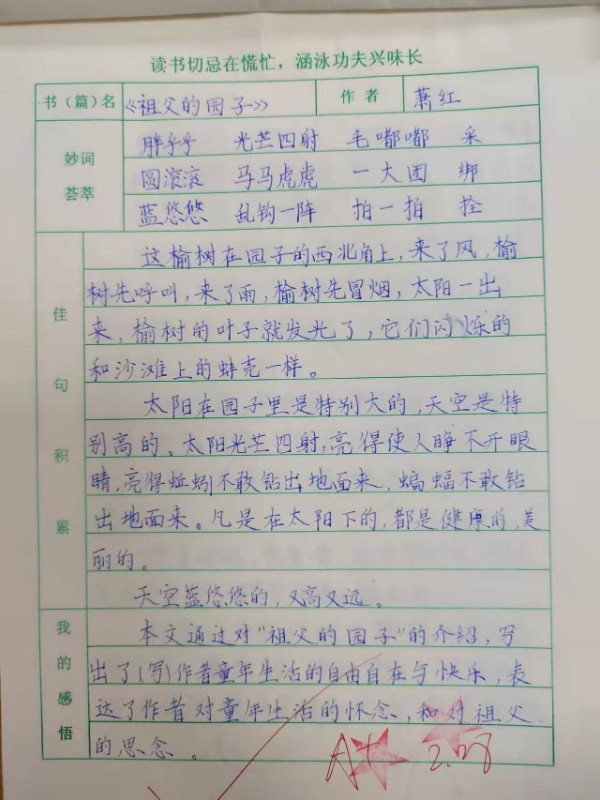 读书切忌在慌忙，涵泳功夫兴味长
书（篇）名 《祖父的园子》 作者 萧红
妙词荟萃
胖乎乎 光芒四射 毛嘟嘟 采
圆滚滚 马马虎虎 一大团 绑
蓝悠悠 乱钩一阵 拍一拍 拴
佳句积累
这榆树在园子的西北角上，来了风，榆
树先呼叫，来了雨，榆树先冒烟，太阳一出
来，榆树的叶子就发光了，它们闪烁的
和沙滩上的蚌壳一样。
太阳在园子里是特别大的，天空是特
别高的。太阳光芒四射，亮得使人睁不开眼
睛，亮得蚯蚓不敢钻出地面来，蝙蝠不敢钻
出地面来。凡是在太阳下的，都是健康的，美
丽的。
天空蓝悠悠的，又高又远。
我的感悟
本文通过对“祖父的园子”的介绍，写
出了(写)作者童年生活的自由自在与快乐，表
达了作者对童年生活的怀念，和对祖父
的思念。
A+ 2.28